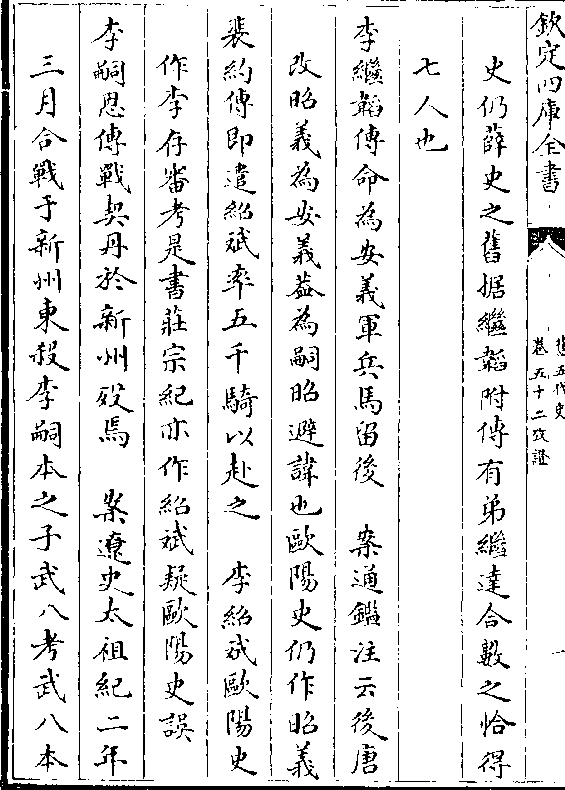 欽定四庫全書
舊五代史
卷五十二攷證
一
史仍薛史之舊据繼韜附傳有弟繼達合數之恰得
七人也
李繼韜傳命為安義軍兵馬留後　案通鑑注云後唐
改昭義為安義葢為嗣昭避諱也歐陽史仍作昭義
裴約傳即遣紹斌率五千騎以赴之　李紹斌歐陽史
作李存審考是書莊宗紀亦作紹斌疑歐陽史誤
李嗣恩傳戰契丹於新州歿焉　案遼史太祖紀二年
三月合戰于新州東殺李嗣本之子武八考武八本